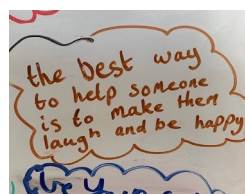 the best way
to help someone
is to make them
laugh and be happy